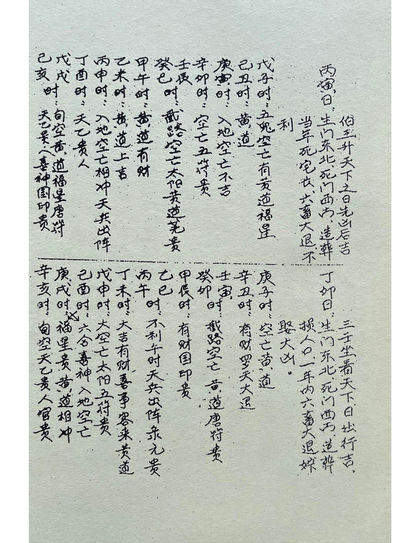 丙寅日：
伯王升天下之日先凶后吉
生门东北，死门西南，造葬
当年死宅长，六畜大退不
利
戊子时：五鬼空亡有黄道福星
己丑时：黄道
庚寅时：入地空亡不吉
辛卯时：空亡五符贵
壬辰
癸巳时：截路空亡太阳黄道文贵
甲午时：黄道有财
乙未时：黄道上吉
丙申时：入地空亡相冲天兵出阵
丁酉时：天乙贵人
戊戌时：旬空黄道福星唐符
己亥时：天乙贵人喜神国印贵
丁卯日：
三壬坐看天下日出行吉，
生门东北，死门西南，造葬
损人口一年内六畜大退嫁
娶大凶。
庚子时：空亡黄道
辛丑时：有财罗天大退
壬寅时：
癸卯时：截路空亡黄道唐符贵
甲辰时：有财国印贵
乙巳时：
丙午时：不利千时天兵出阵杀元贵
丁未时：大吉有财喜事客来黄道
戊申时：大空亡太阳五符贵
己酉时：六合喜神入地空亡
庚戌时：福星贵黄道相冲
辛亥时：旬空天乙贵人官贵